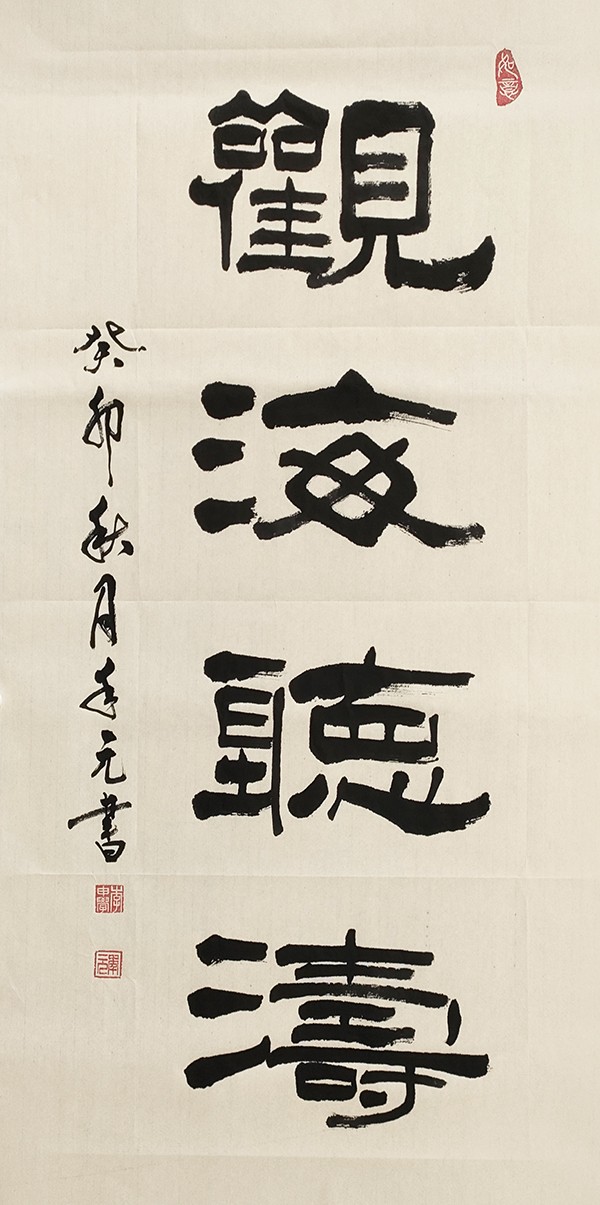 如意
觀海聽濤
癸卯秋月元書